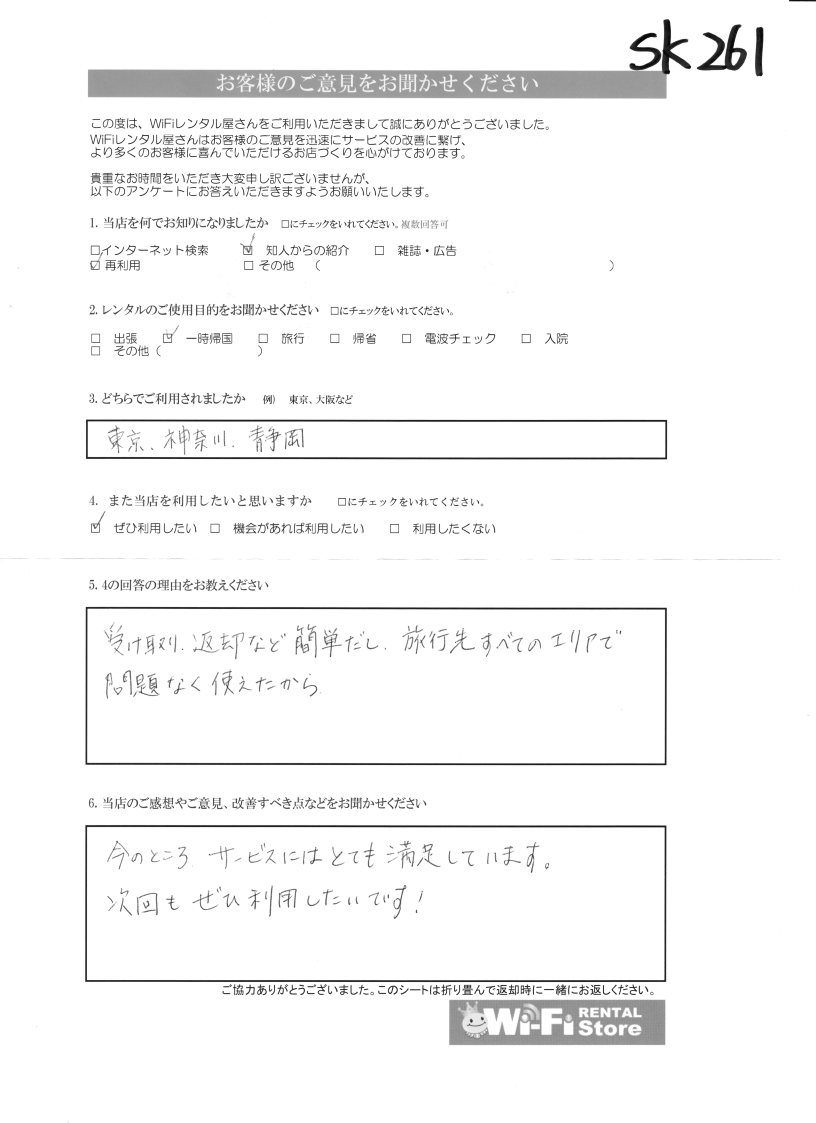 SK261
お客様のご意見をお聞かせください
この度は、WiFiレンタル屋さんをご利用いただきまして誠にありがとうございました。
WiFiレンタル屋さんはお客様のご意見を迅速にサービスの改善に繋げ、
より多くのお客様に喜んでいただけるお店づくりを心がけております。
貴重なお時間をいただき大変申し訳ございませんが、
以下のアンケートにお答えいただきますようお願いいたします。
1. 当店を何でお知りになりましたか □にチェックをいれてください。複数回答可
□インターネット検索 ☑ 知人からの紹介 □ 雑誌・広告
☑ 再利用 □ その他 ( )
2. レンタルのご使用目的をお聞かせください □にチェックをいれてください。
□ 出張 ☑ 一時帰国 □ 旅行 □ 帰省 □ 電波チェック □ 入院
□ その他 ( )
3. どちらでご利用されましたか 例) 東京、大阪など
東京、神奈川、静岡
4. また当店を利用したいと思いますか □にチェックをいれてください。
☑ ぜひ利用したい □ 機会があれば利用したい □ 利用したくない
5. 4の回答の理由をお教えください
受け取り、返却など簡単だし、旅行先すべてのエリアで
問題なく使えたから
6. 当店のご感想やご意見、改善すべき点などをお聞かせください
今のところ、サービスにはとても満足しています。
次回もぜひ利用したいです!
ご協力ありがとうございました。このシートは折り畳んで返却時に一緒にお返しください。
Wi-Fi RENTAL Store